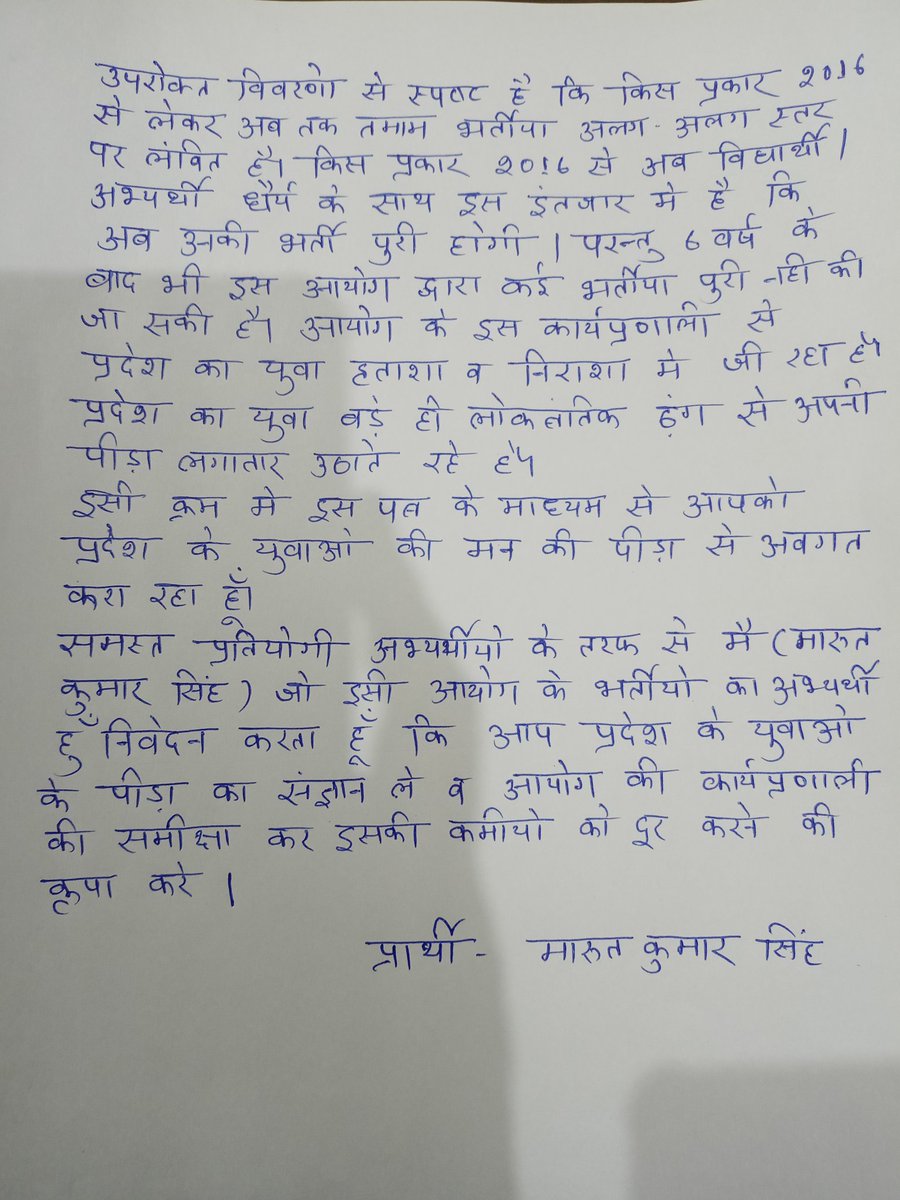 उपरोक्त विवरणो से स्पष्ट है कि किस प्रकार 2016
से लेकर अब तक तमाम भर्तीया अलग-अलग स्तर
पर लंवित है। किस प्रकार 2016 से अब विद्यार्थी।
अभ्यर्थी धैर्य के साथ इस इंतजार मे है कि
अब उनकी भर्ती पुरी होगी। परन्तु 6 वर्ष के
बाद भी इस आयोग द्वारा कई भर्तीया पुरी नही की
जा सकी है। आयोग के इस कार्यप्रणाली से
प्रदेश का युवा हताशा व निराशा मे जी रहा है।
प्रदेश का युवा बड़े ही लोकतांतिक ढ़ंग से अपनी
पीड़ा लगातार उठाते रहे है।
इसी क्रम मे इस पत्र के माध्यम से आपको
प्रदेश के युवाओ की मन की पीड़ा से अवगत
करा रहा हूँ।
समस्त प्रतियोगी अभ्यर्थीयो के तरफ से मै (मारुत
कुमार सिंह) जो इसी आयोग के भर्तीयो का अभ्यर्थी
हुँ निवेदन करता हूँ कि आप प्रदेश के युवाओ
के पीड़ा का संज्ञान ले व आयोग की कार्यप्रणाली
की समीक्षा कर इसकी कमीयो को दूर करने की
कृपा करे।
प्रार्थी - मारुत कुमार सिंह